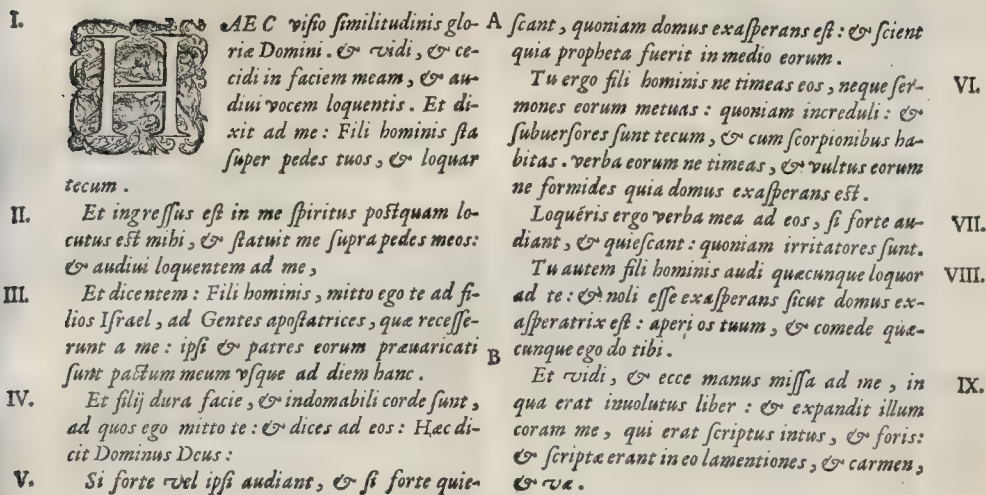 I.
HAEC visio similitudinis glo-
riæ Domini. & vidi, & ce-
cidi in faciem meam, & au-
diui vocem loquentis. Et di-
xit ad me: Fili hominis sta
super pedes tuos, & loquar
tecum.
II.
Et ingressus est in me spiritus postquam lo-
cutus est mihi, & statuit me supra pedes meos:
& audiui loquentem ad me,
III.
Et dicentem: Fili hominis, mitto ego te ad fi-
lios Israel, ad Gentes apostatrices, quæ recesse-
runt a me: ipsi & patres eorum præuaricati
sunt pactum meum vsque ad diem hanc.
IV.
Et filij dura facie, & indomabili corde sunt,
ad quos ego mitto te: & dices ad eos: Hæc di-
cit Dominus Deus:
V.
Si forte vel ipsi audiant, & si forte quie-
A
scant, quoniam domus exasperans est: & scient
quia propheta fuerit in medio eorum.
VI.
Tu ergo fili hominis ne timeas eos, neque ser-
mones eorum metuas: quoniam increduli: &
subuersores sunt tecum, & cum scorpionibus ha-
bitas. verba eorum ne timeas, & vultus eorum
ne formides quia domus exasperans est.
VII.
Loquéris ergo verba mea ad eos, si forte au-
diant, & quiescant: quoniam irritatores sunt.
VIII.
Tu autem fili hominis audi quæcunque loquor
ad te: & noli esse exasperans sicut domus ex-
asperatrix est: aperi os tuum, & comede quæ-
B
cunque ego do tibi.
IX.
Et vidi, & ecce manus missa ad me, in
qua erat inuolutus liber: & expandit illum
coram me, qui erat scriptus intus, & foris:
& scriptæ erant in eo lamentiones, & carmen,
& væ.